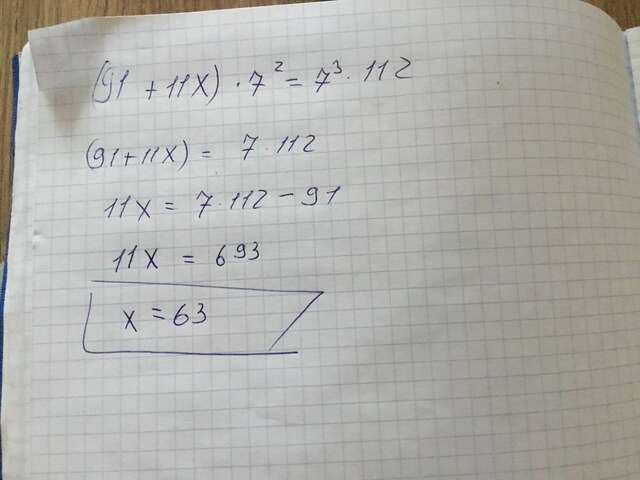 (91 + 11X) · 7² = 7³ · 112
(91 + 11X) = 7 · 112
11X = 7 · 112 - 91
11X = 693
x = 63